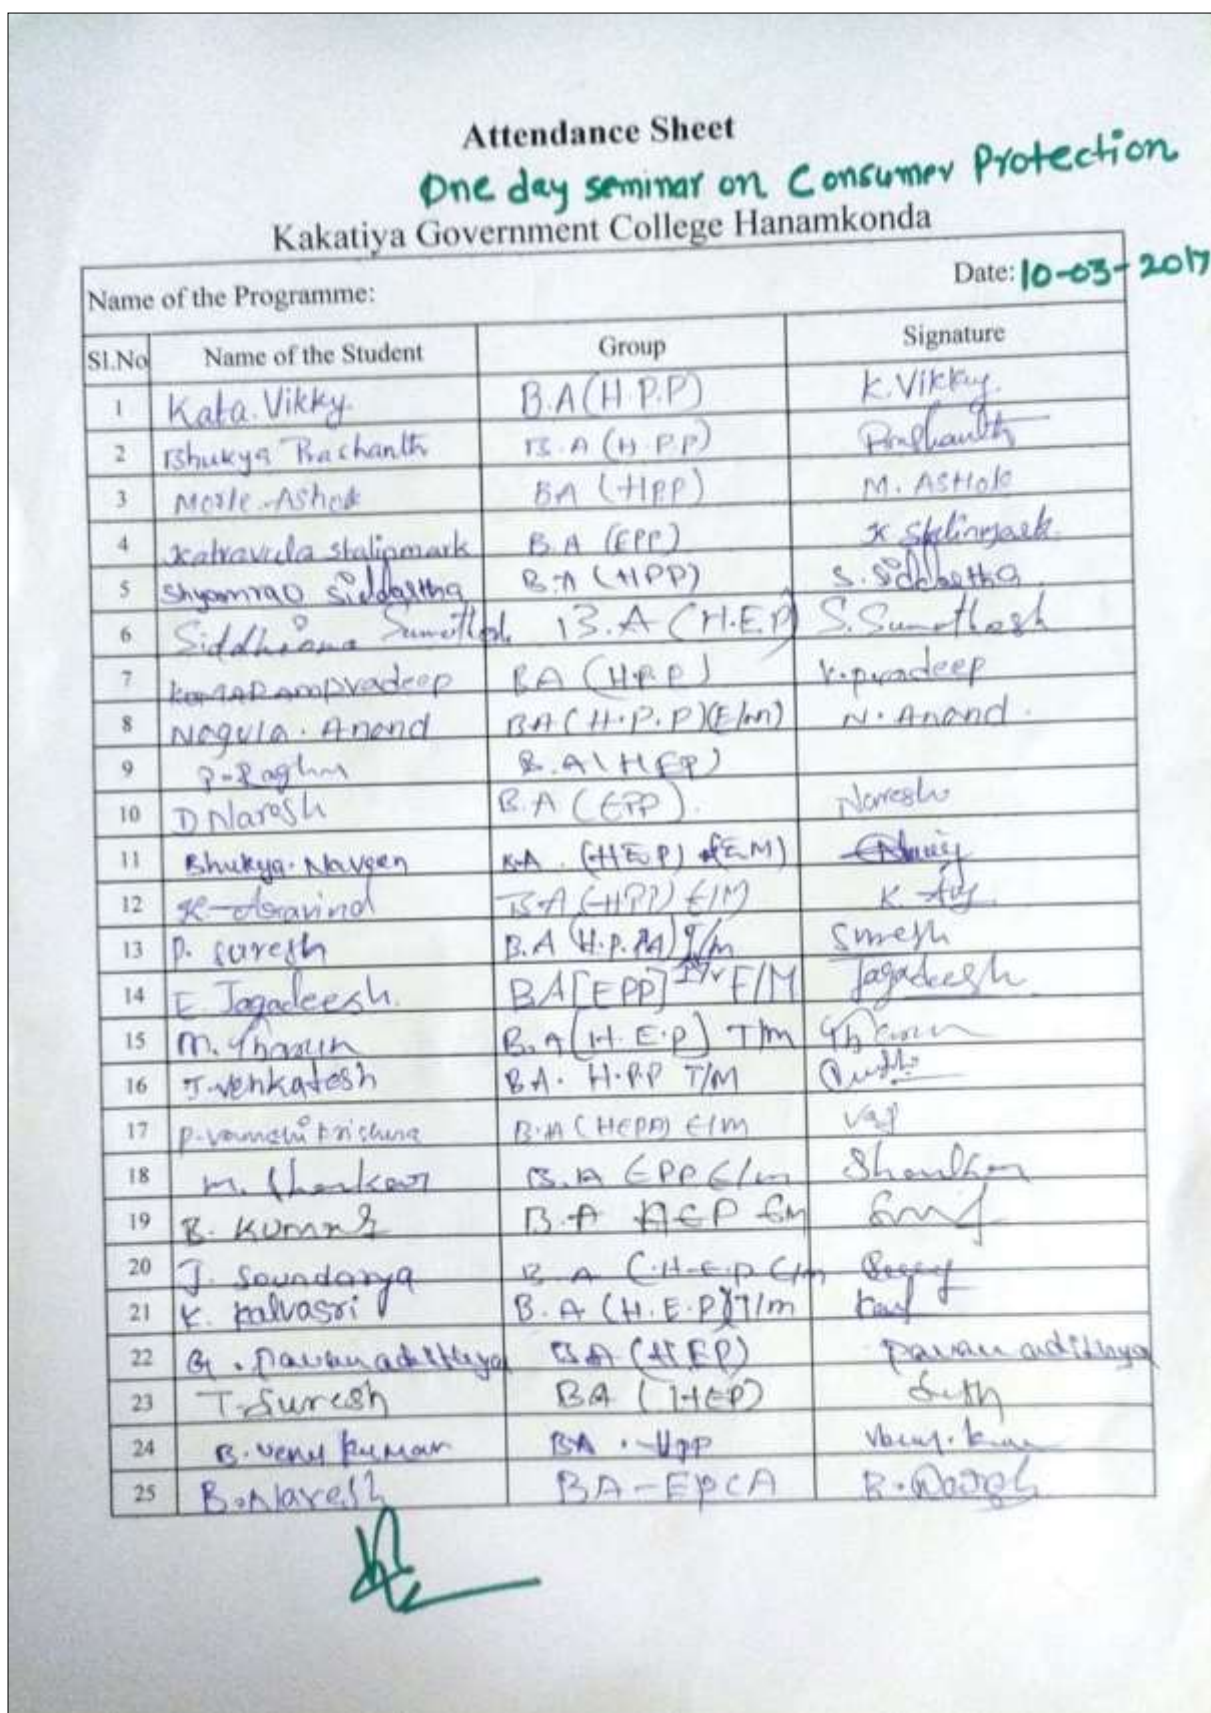 Attendance Sheet
One day seminar on Consumer Protection
Kakatiya Government College Hanamkonda
Name of the Programme: Date: 10-03-2017
Sl.No Name of the Student Group Signature
1 Kata. Vikky. B.A(H.P.P) K. Vikky.
2 Bhukya Prashanth B.A (H.P.P) Prashanth
3 Ashok BA (HPP) M. AsHok
4 stalinmark B.A (EPP) K stalinmark
5 Shyamrao Siddartha B.A (HPP) S. Siddartha
6 B.A (H.E.P)
7 pradeep BA (H.P.P) K. pradeep
8 Nagula. Anand BA (H.P.P)(E/m) N. Anand.
9 P. B.A (HEP)
10 D Naresh B.A (EPP). Naresh
11 Bhukya. Naveen B.A. (HEP) (EM)
12 K. Aravind B.A (HPP) E/M K.
13 P. Suresh B.A T/m Suresh
14 E Jagadeesh. BA[EPP] E/M Jagadeesh
15 M. Tharun B.A (H.E.P) T/m Tharun
16 T. Venkatesh BA. H.PP T/M
17 P. vamshi krishna B.A E/m
18 M. Shankar B.A EPP E/m Shankar
19 B. Kumar B.A HEP Em
20 J. Soundarya B A (H.E.P E/m
21 K. B.A (H.E.P) T/m
22 G. Pavan adithya BA (HEP) Pavan adithya
23 T. Suresh BA (HEP)
24 B. Venu kumar BA. HPP
25 B. Naresh BA-EPCA